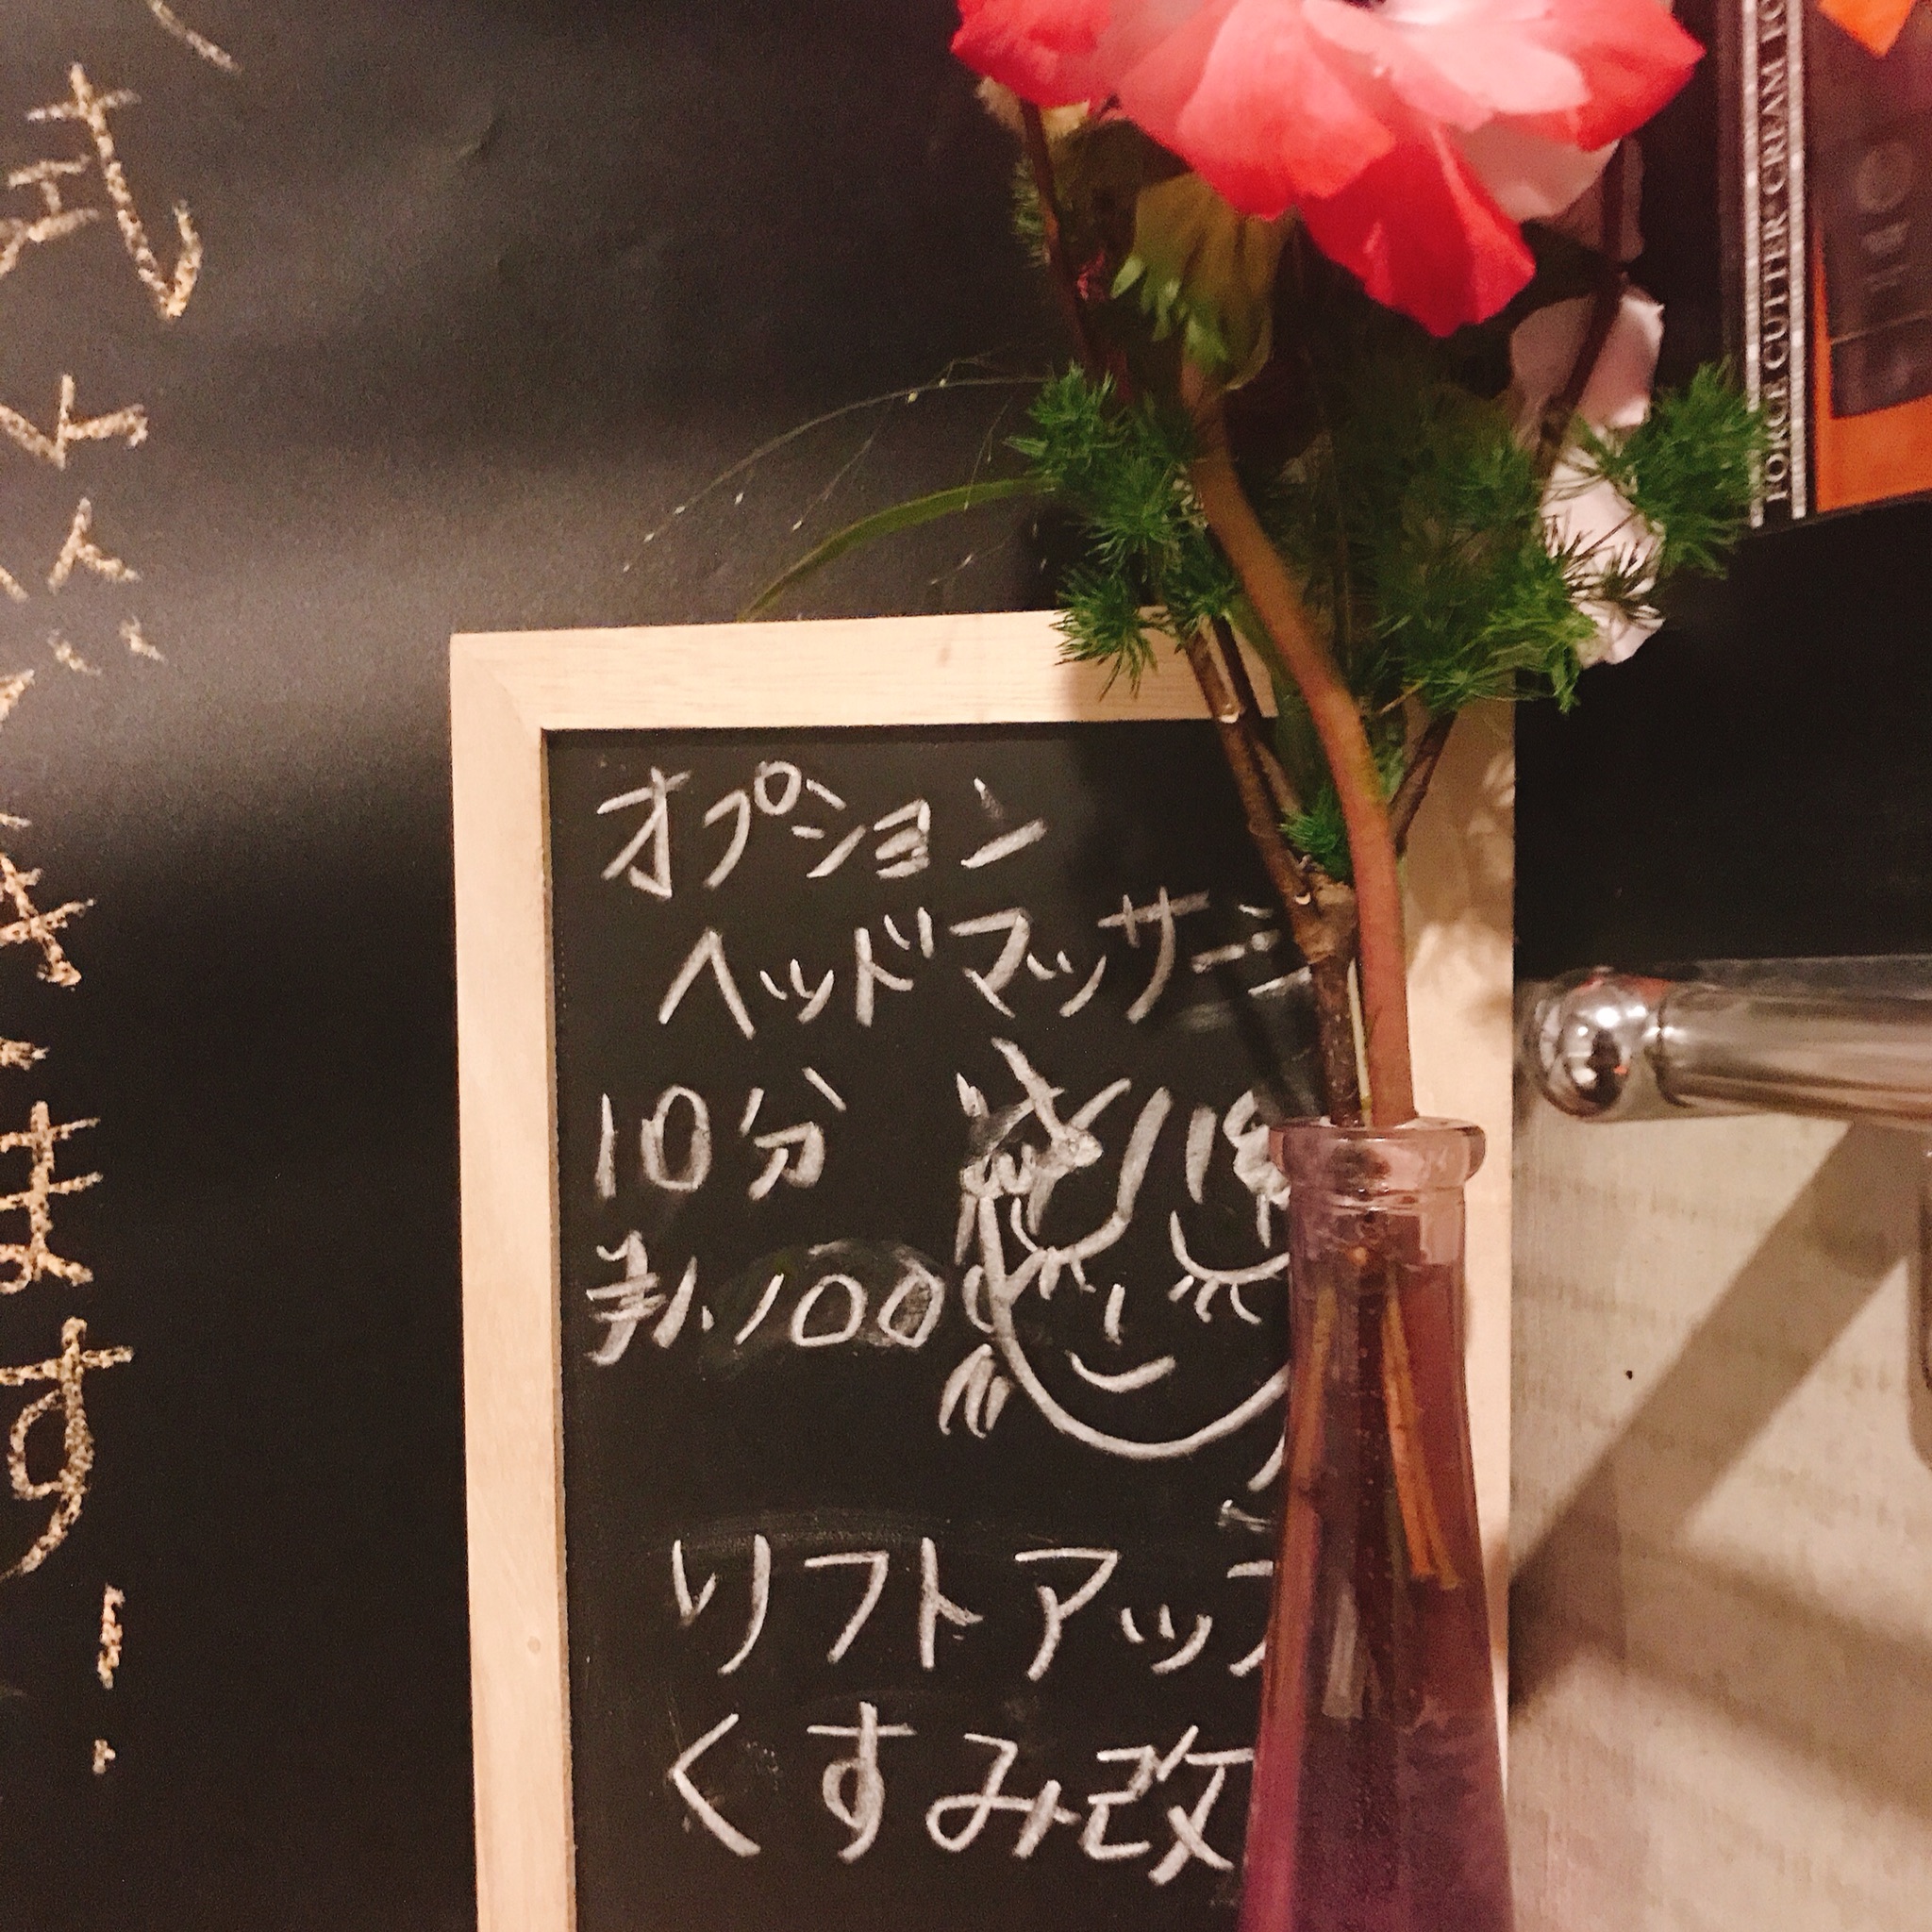 オプション
ヘッドマッサージ
10分
¥1,100
リフトアップ
くすみ改
ます!
FORCE CUTTER CREAM FO